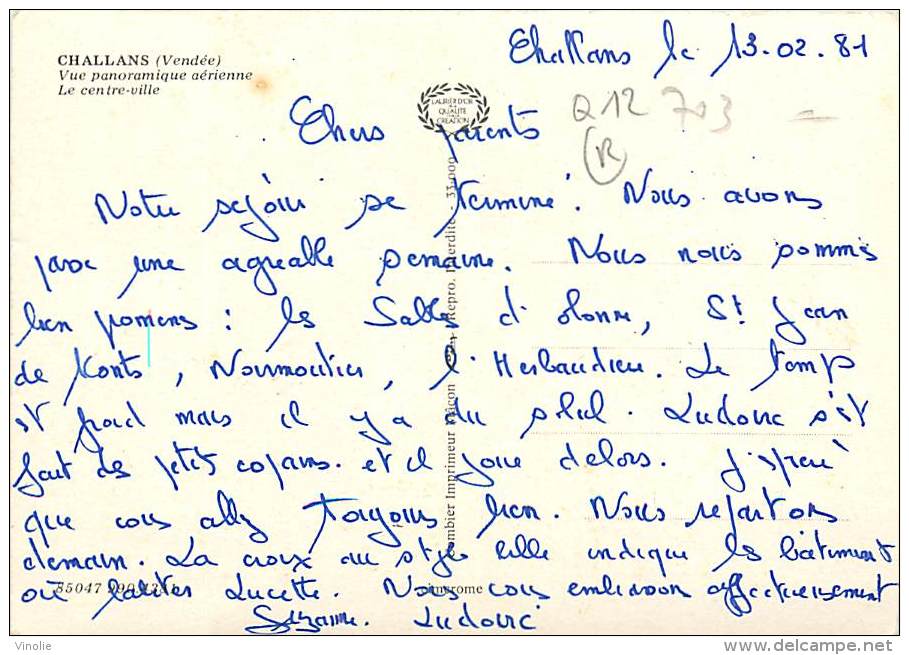 Challans le 13-02-81
CHALLANS (Vendée)
Vue panoramique aérienne
Le centre-ville
LAURIER D'OR
DE LA
QUALITÉ
CRÉATION
Q12 703
R
Chers parents
Notre séjour se termine. Nous avons
passé une agréable semaine. Nous nous sommes
bien promenés : les Sables d'olonne, St Jean
de Monts, Noirmoutier, l'Herbaudière. Le temps
est froid mais il y a du soleil. Ludovic s'est
fait des petits copains. et il joue dehors. J'espère
que vous allez toujours bien. Nous repartons
demain. La croix au stylo bille indique les bâtiment
où Lucette. Nous vous embrassons affectueusement
Suzanne. Ludovic
85047 990
Combier Imprimeur Mâcon Repro. Interdite - 33.000
Vinolie
www.delcampe.net